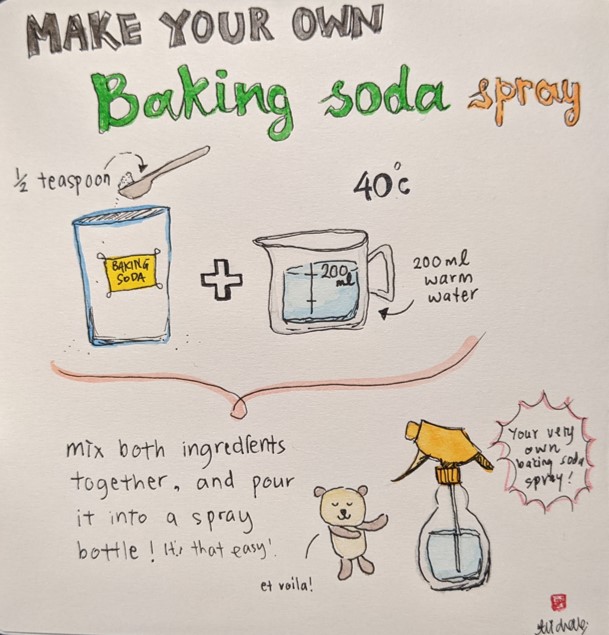 MAKE YOUR OWN
Baking soda spray
½ teaspoon
40°c
BAKING
SODA
200
ml
200ml
warm
water
mix both ingredients
together, and pour
it into a spray
bottle! It's that easy!
et voila!
Your very
own
baking soda
spray!